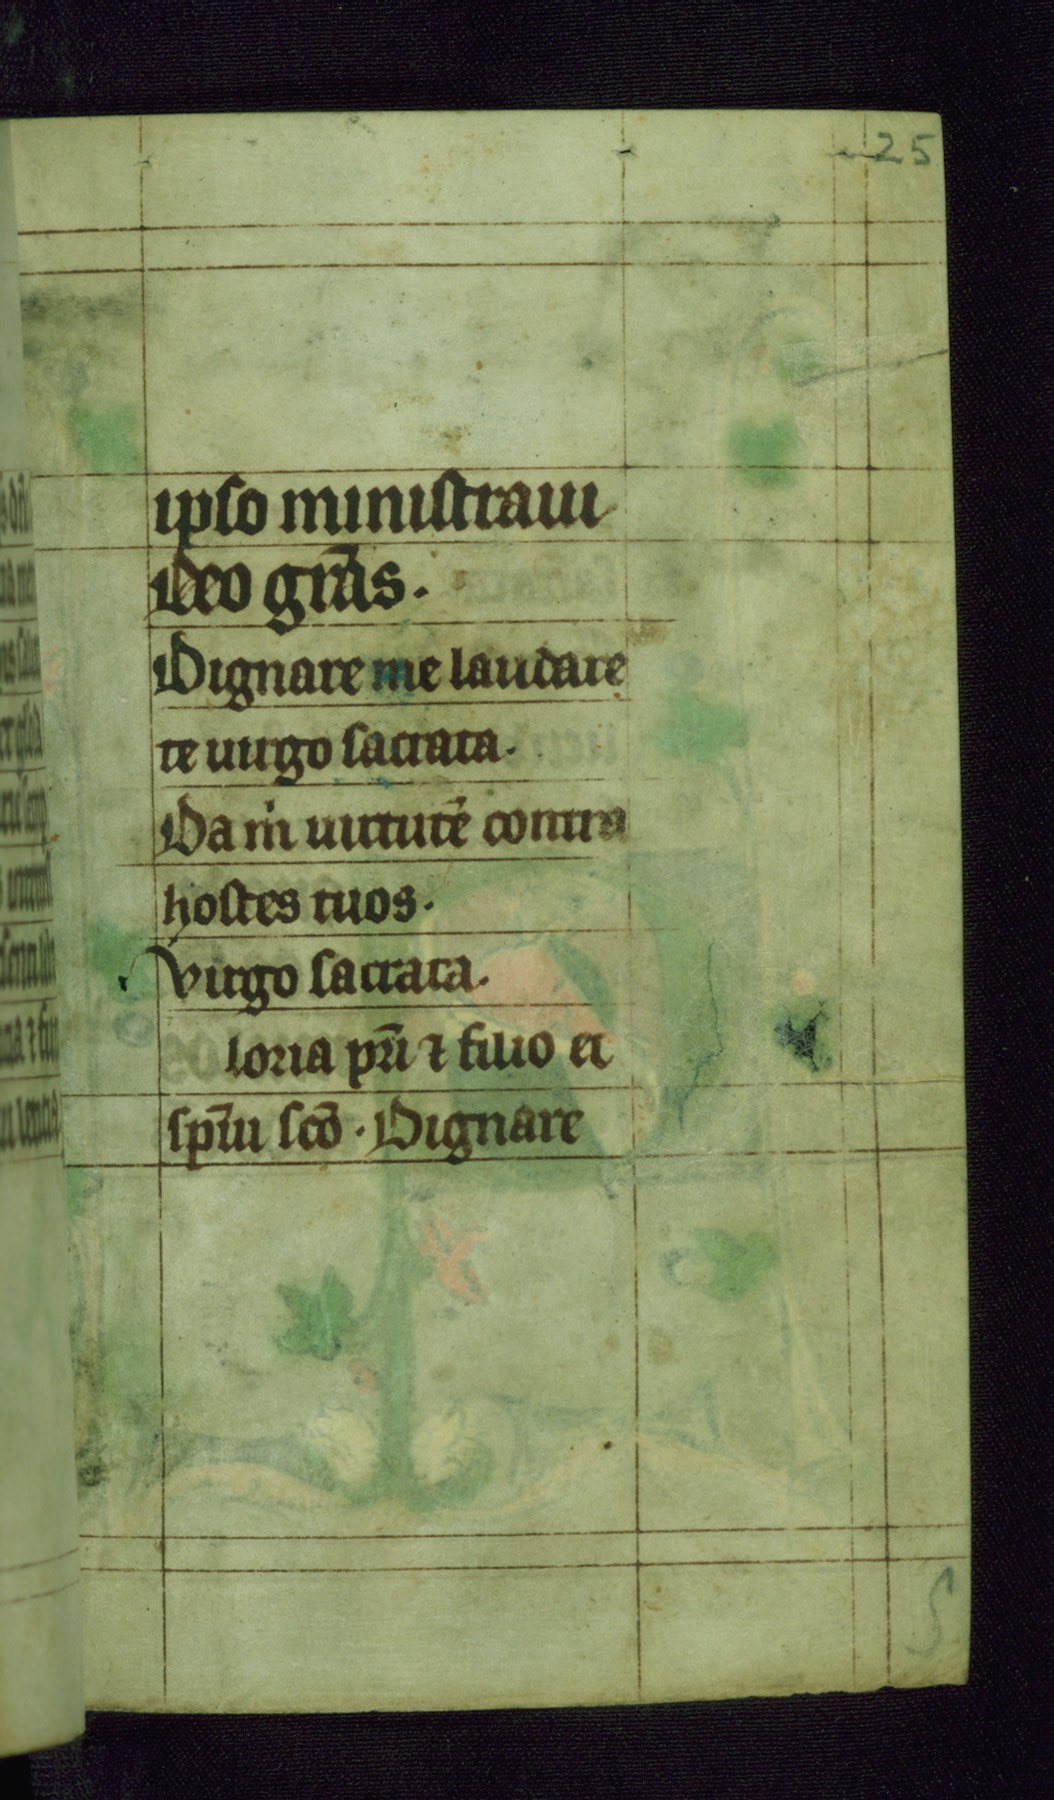 25
ipso ministraui
Deo gr̄as.
Dignare me laudare
te uirgo sacrata.
Da m̅ uirtutē contra
hostes tuos.
Virgo sacrata.
loria pr̄i ⁊ filio et
sp̄iu sc̄o. Dignare